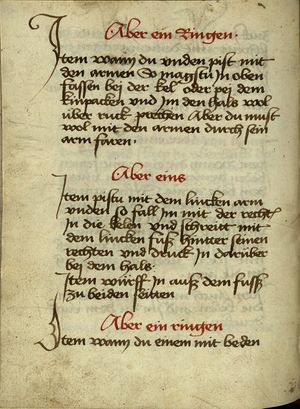 Aber ein Ringen.
Item wann du vnden pist mit
den armen So magstu In oben
fassen bei der kel oder pei dem
kinpacken vnd Im den hals wol
über ruck prechen Aber du must
wol mit den armen durch sein
arm faren.
Aber eins
Item pistu mit dem lincken arm
vnden so fall Im mit der recht
In die kelen vnd schreit mit
dem lincken fuß hintter seinen
rechten vnd druck In darüber
bei dem hals.
Item würff In auß dem fuß
zu beiden seitten
Aber ein ringen
Item wann du einem mit beiden